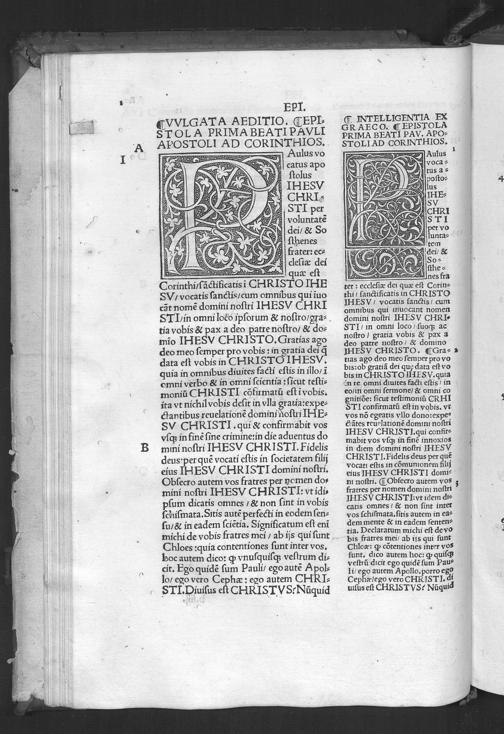 EPI.
¶VVLGATA AEDITIO. ¶EPI-
STOLA PRIMA BEATI PAVLI
APOSTOLI AD CORINTHIOS.
A
I
PAulus vo
catus apo
stolus
IHESV
CHRI-
STI per
voluntatē
dei/ & So
sthenes
frater: ec-
clesiæ dei
quæ est
Corinthi/sāctificatis ī CHRISTO IHE
SV/ vocatis sanctis/cum omnibus qui iuo
cāt nomē domini nostri IHESV CHRI
STI/in omni loco ipsorum & nostro/gra-
tia vobis & pax a deo patre nostro/ & do-
mīo IHESV CHRISTO. Gratias ago
deo meo semper pro vobis: in gratia dei q̄
data est vobis in CHRISTO IHESV.
quia in omnibus diuites facti estis in illo/ ī
omni verbo & in omni scientia: sicut testi-
moniū CHRISTI cōfirmatū est ī vobis.
ita vt nichil vobis desit in vlla gratia: expe-
ctantibus reuelationē domini nostri IHE-
SV CHRISTI. qui & confirmabit vos
vsq; in finē sine crimine: in die aduentus do
B
mini nostri IHESV CHRISTI. Fidelis
deus: per quē vocati estis in societatem filij
eius IHESV CHRISTI domini nostri.
Obsecro autem vos fratres per nomen do-
mini nostri IHESV CHRISTI: vt idi-
psum dicatis omnes / & non sint in vobis
schismata. Sitis autē perfecti in eodem sen-
su/ & in eadem sciētia. Significatum est enī
michi de vobis fratres mei / ab iis qui sunt
Chloes: quia contentiones sunt inter vos.
hoc autem dico: ꝙ vnusquisq; vestrum di-
cit. Ego quidē sum Pauli/ ego autē Apol-
lo/ ego vero Cephæ: ego autem CHRI-
STI. Diuisus est CHRISTVS? Nūquid
¶ INTELLIGENTIA EX
GRAECO. ¶EPISTOLA
PRIMA BEATI PAV. APO-
STOLI AD CORINTHIOS.
PAulus
voca-
tus a-
posto-
lus
IHE-
SV
CHRI
STI
per vo
lunta-
tem
dei/
&
So-
sthe-
nes fra
ter: ecclesiæ dei quæ est Corin-
thi / sanctificatis in CHRISTO
IHESV/ vocatis sanctis/ cum
omnibus qui inuocant nomen
domini nostri IHESV CHRI-
STI/ in omni loco/ suoq; ac
nostro/ gratia vobis & pax a
deo patre nostro/ & domino
IHESV CHRISTO. ¶Gra-
tias ago deo meo semper pro vo
bis: ob gratiā dei quę data est vo
bis in CHRISTO IHESV. quia
in re omni ditati facti estis/ in
eo: in omni sermone/ & omni co
gnitiōe: sicut testimoniū CRHI
STI confirmatū est in vobis. vt
vos nō egeatis vllo dono: expe-
ctātes reuelationē domini nostri
IHESV CHRISTI. qui confir-
mabit vos vsq; in finem innoxios
in diem domini nostri IHESV
CHRISTI. Fidelis deus per quē
vocati estis in cōmunionem filij
eius IHESV CHRISTI domi-
ni nostri. ¶Obsecro autem vos
fratres per nomen domini nostri
IHESV CHRISTI: vt idem di-
catis omnes / & non sint inter
vos schismata. sitis autem in ea-
dem mente & in eadem senten-
tia. Declaratum michi est de vo
bis fratres mei/ ab iis qui sunt
Chloæ: ꝙ cōtentiones inter vos
sunt. dico autem hoc: ꝙ quisq;
vestrū dicit ego quidē sum Pau-
li/ ego autem Apollo. porro ego
Cephæ/ ego vero CHRISTI. di
uisus est CHRISTVS? Nūquid